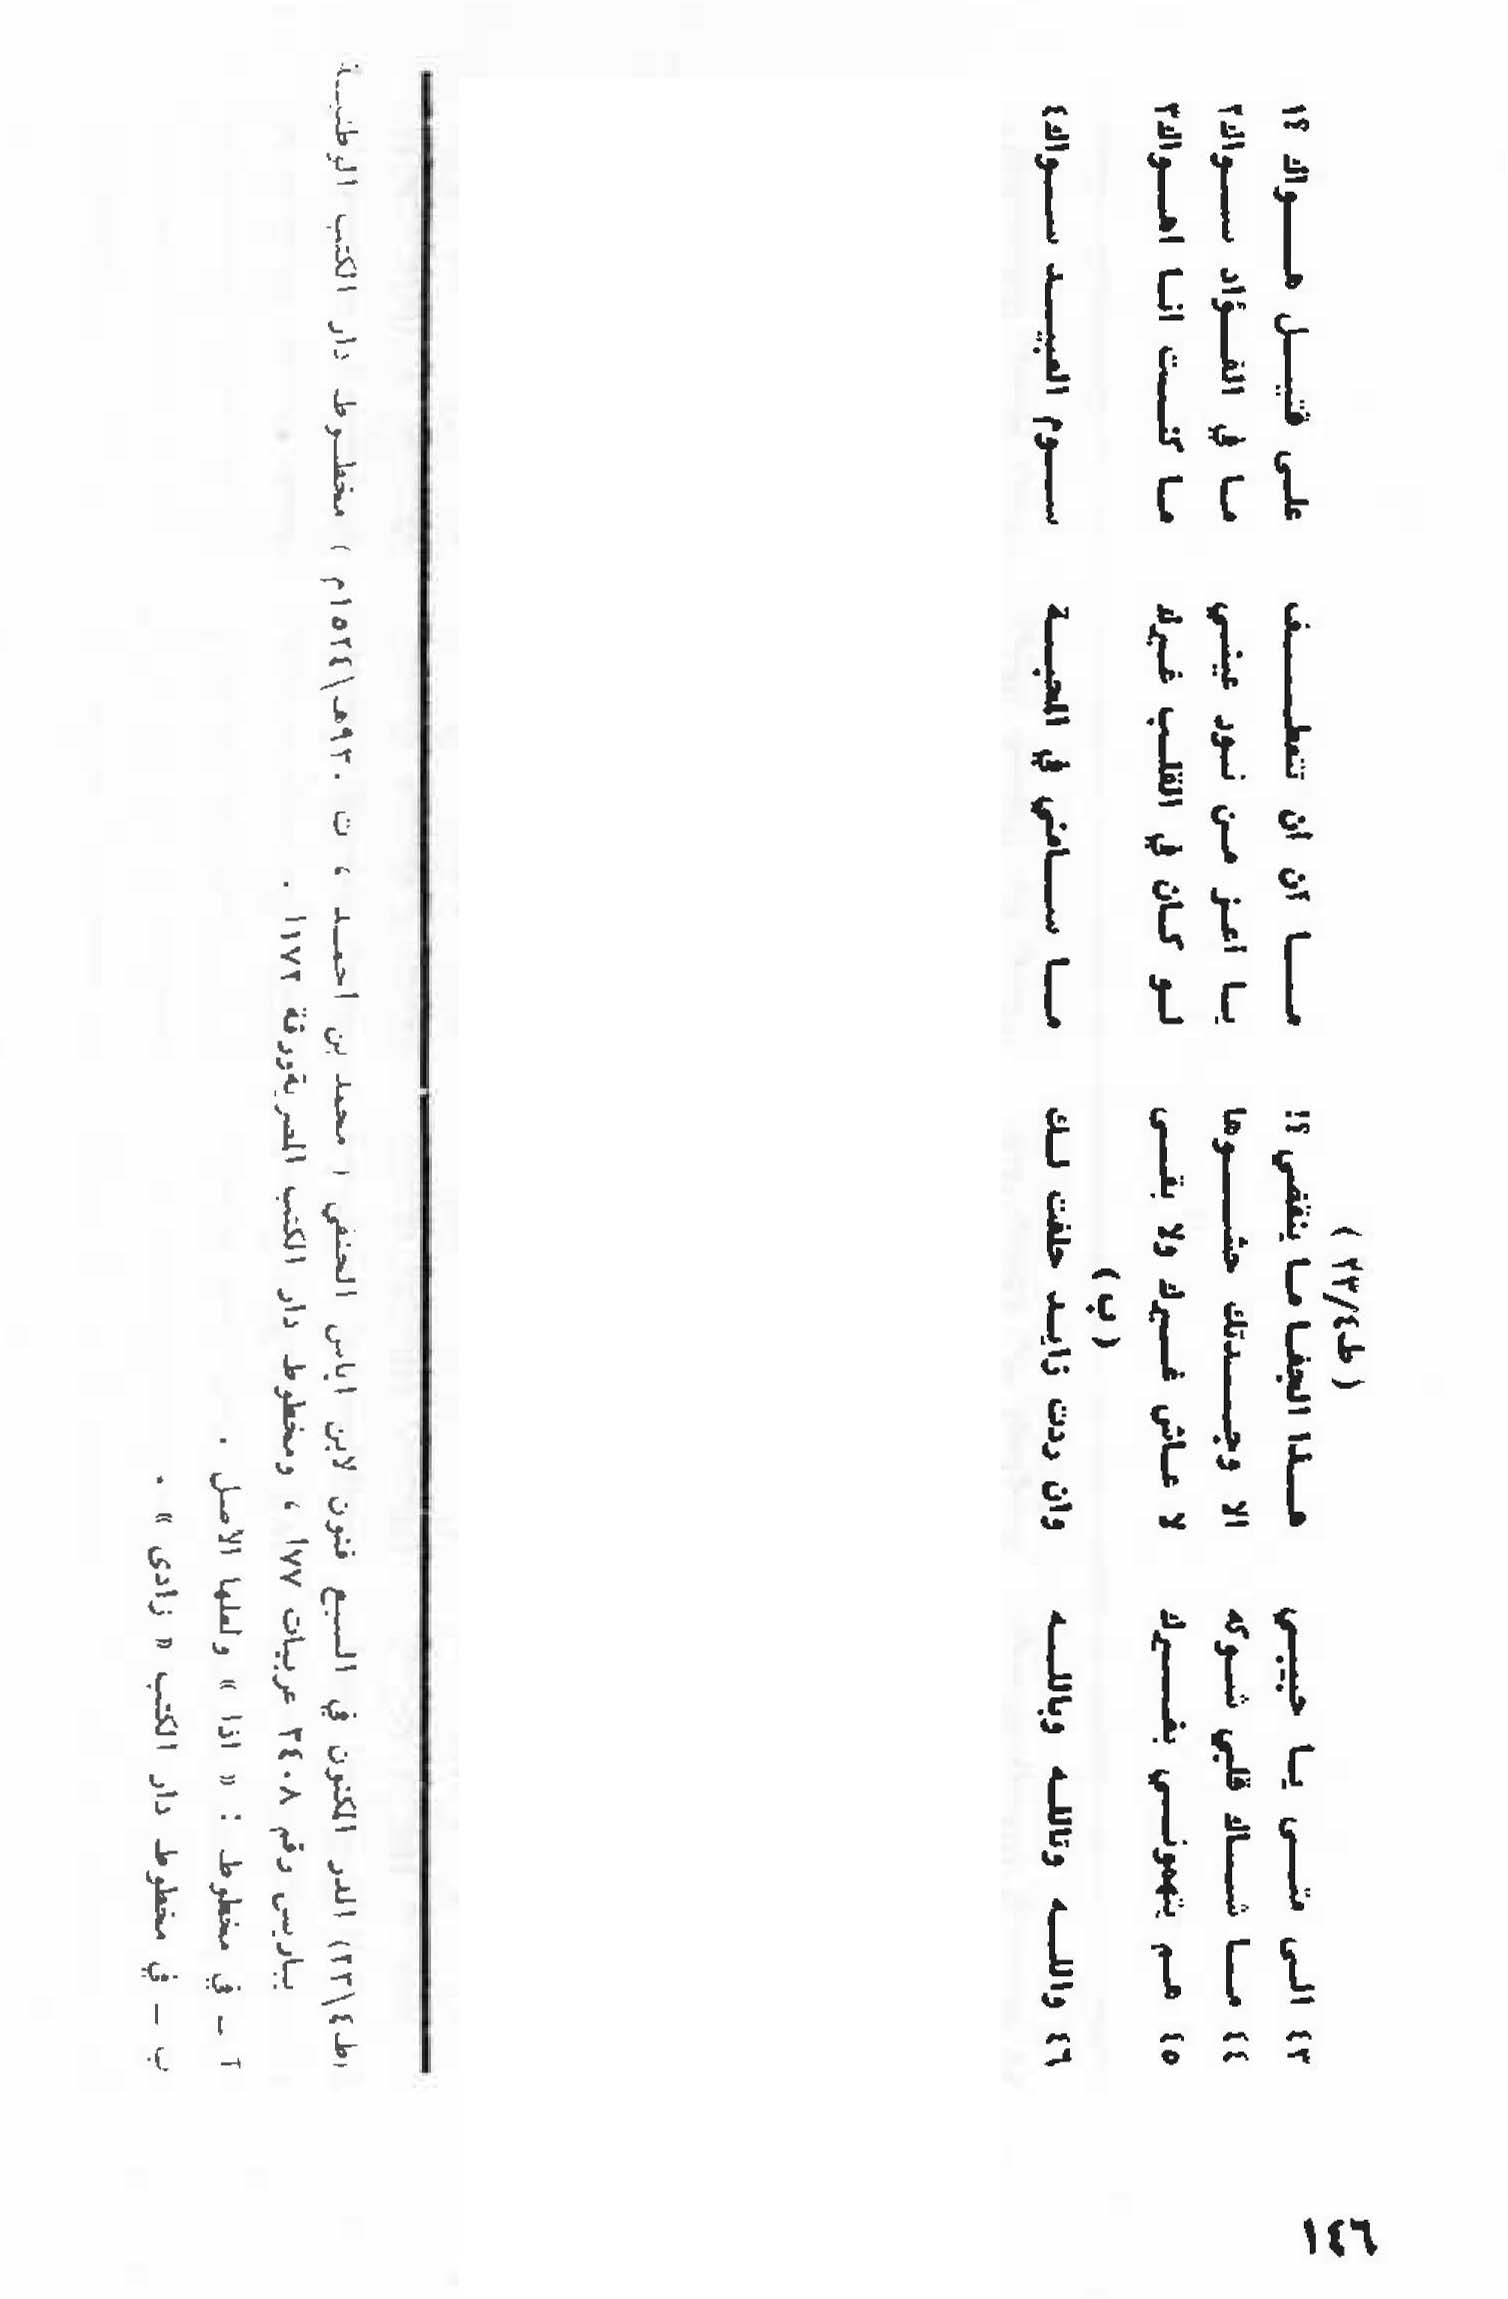 (ط٣٣/٤)
٤٣ الى متـى يـا حبيبـي هـذا الجفـا مـا ينقضي ؟! مـا آن ان تتعطـف على قتيـل هـواك ؟١
٤٤ مـا شـاك قلبي شـوكه الا وجـدتك حشـوها يـا اعـز مـن نـور عيـني مـا في الفـؤاد سـواك٢
٤٥ هـم يتهمونـي بغيـرك لا عـاش غيـرك ولا بقـى لـو كـان في القلـب غيرك مـا كنـت انـا اهـواك٣
(ب)
٤٦ واللـه وتاللـه وباللـه وان ردت زايـد حلفت لـك مـا سـامني في المحبـة سـوم العبيـد سـواك٤
(ط٣٣/٤) الدر المكنون في السبع فنون لابن اياس الحنفي ( محمد بن احمـد ، ت ٩٣٠هـ/١٥٢٤م ) مخطـوط دار الكتب الوطنيـة
بباريس رقم ٣٤٠٨ عربيات ٧٧أ ، ومخطوط دار الكتب المصرية ورقة ١١٧٢ .
٢ ـ في مخطوط : « اذا » ولعلها الاصل .
ب ـ في مخطوط دار الكتب « زادى » .
١٤٦